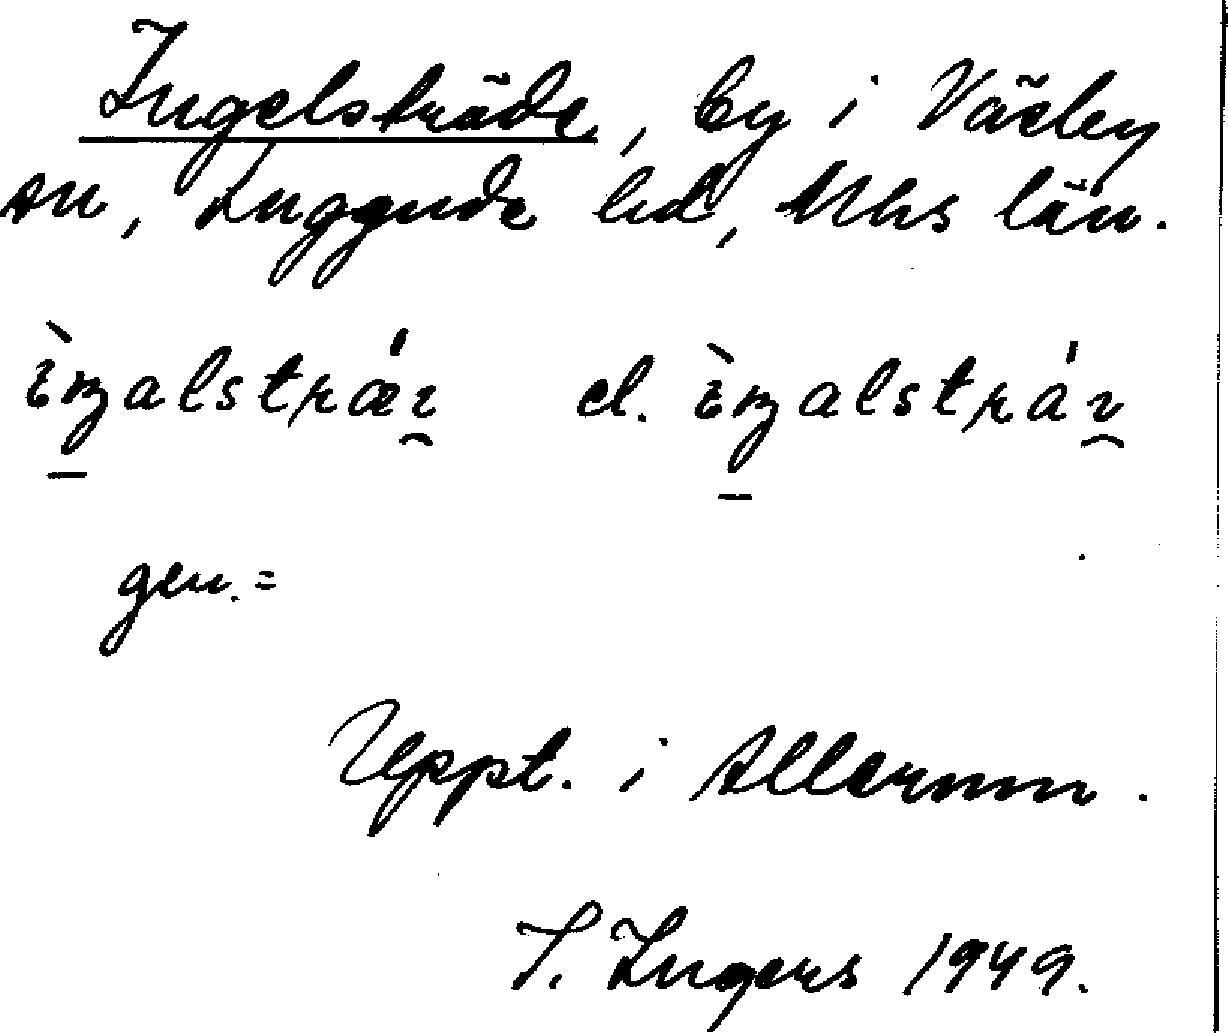 Ingelsträde, by i Väsby
sn, Luggude hd, Mhs län.
ìŋalstrǽɪ̯ el. ìŋalstráɪ̯
gen. =
Uppt. i Allerum.
I. Ingers 1949.